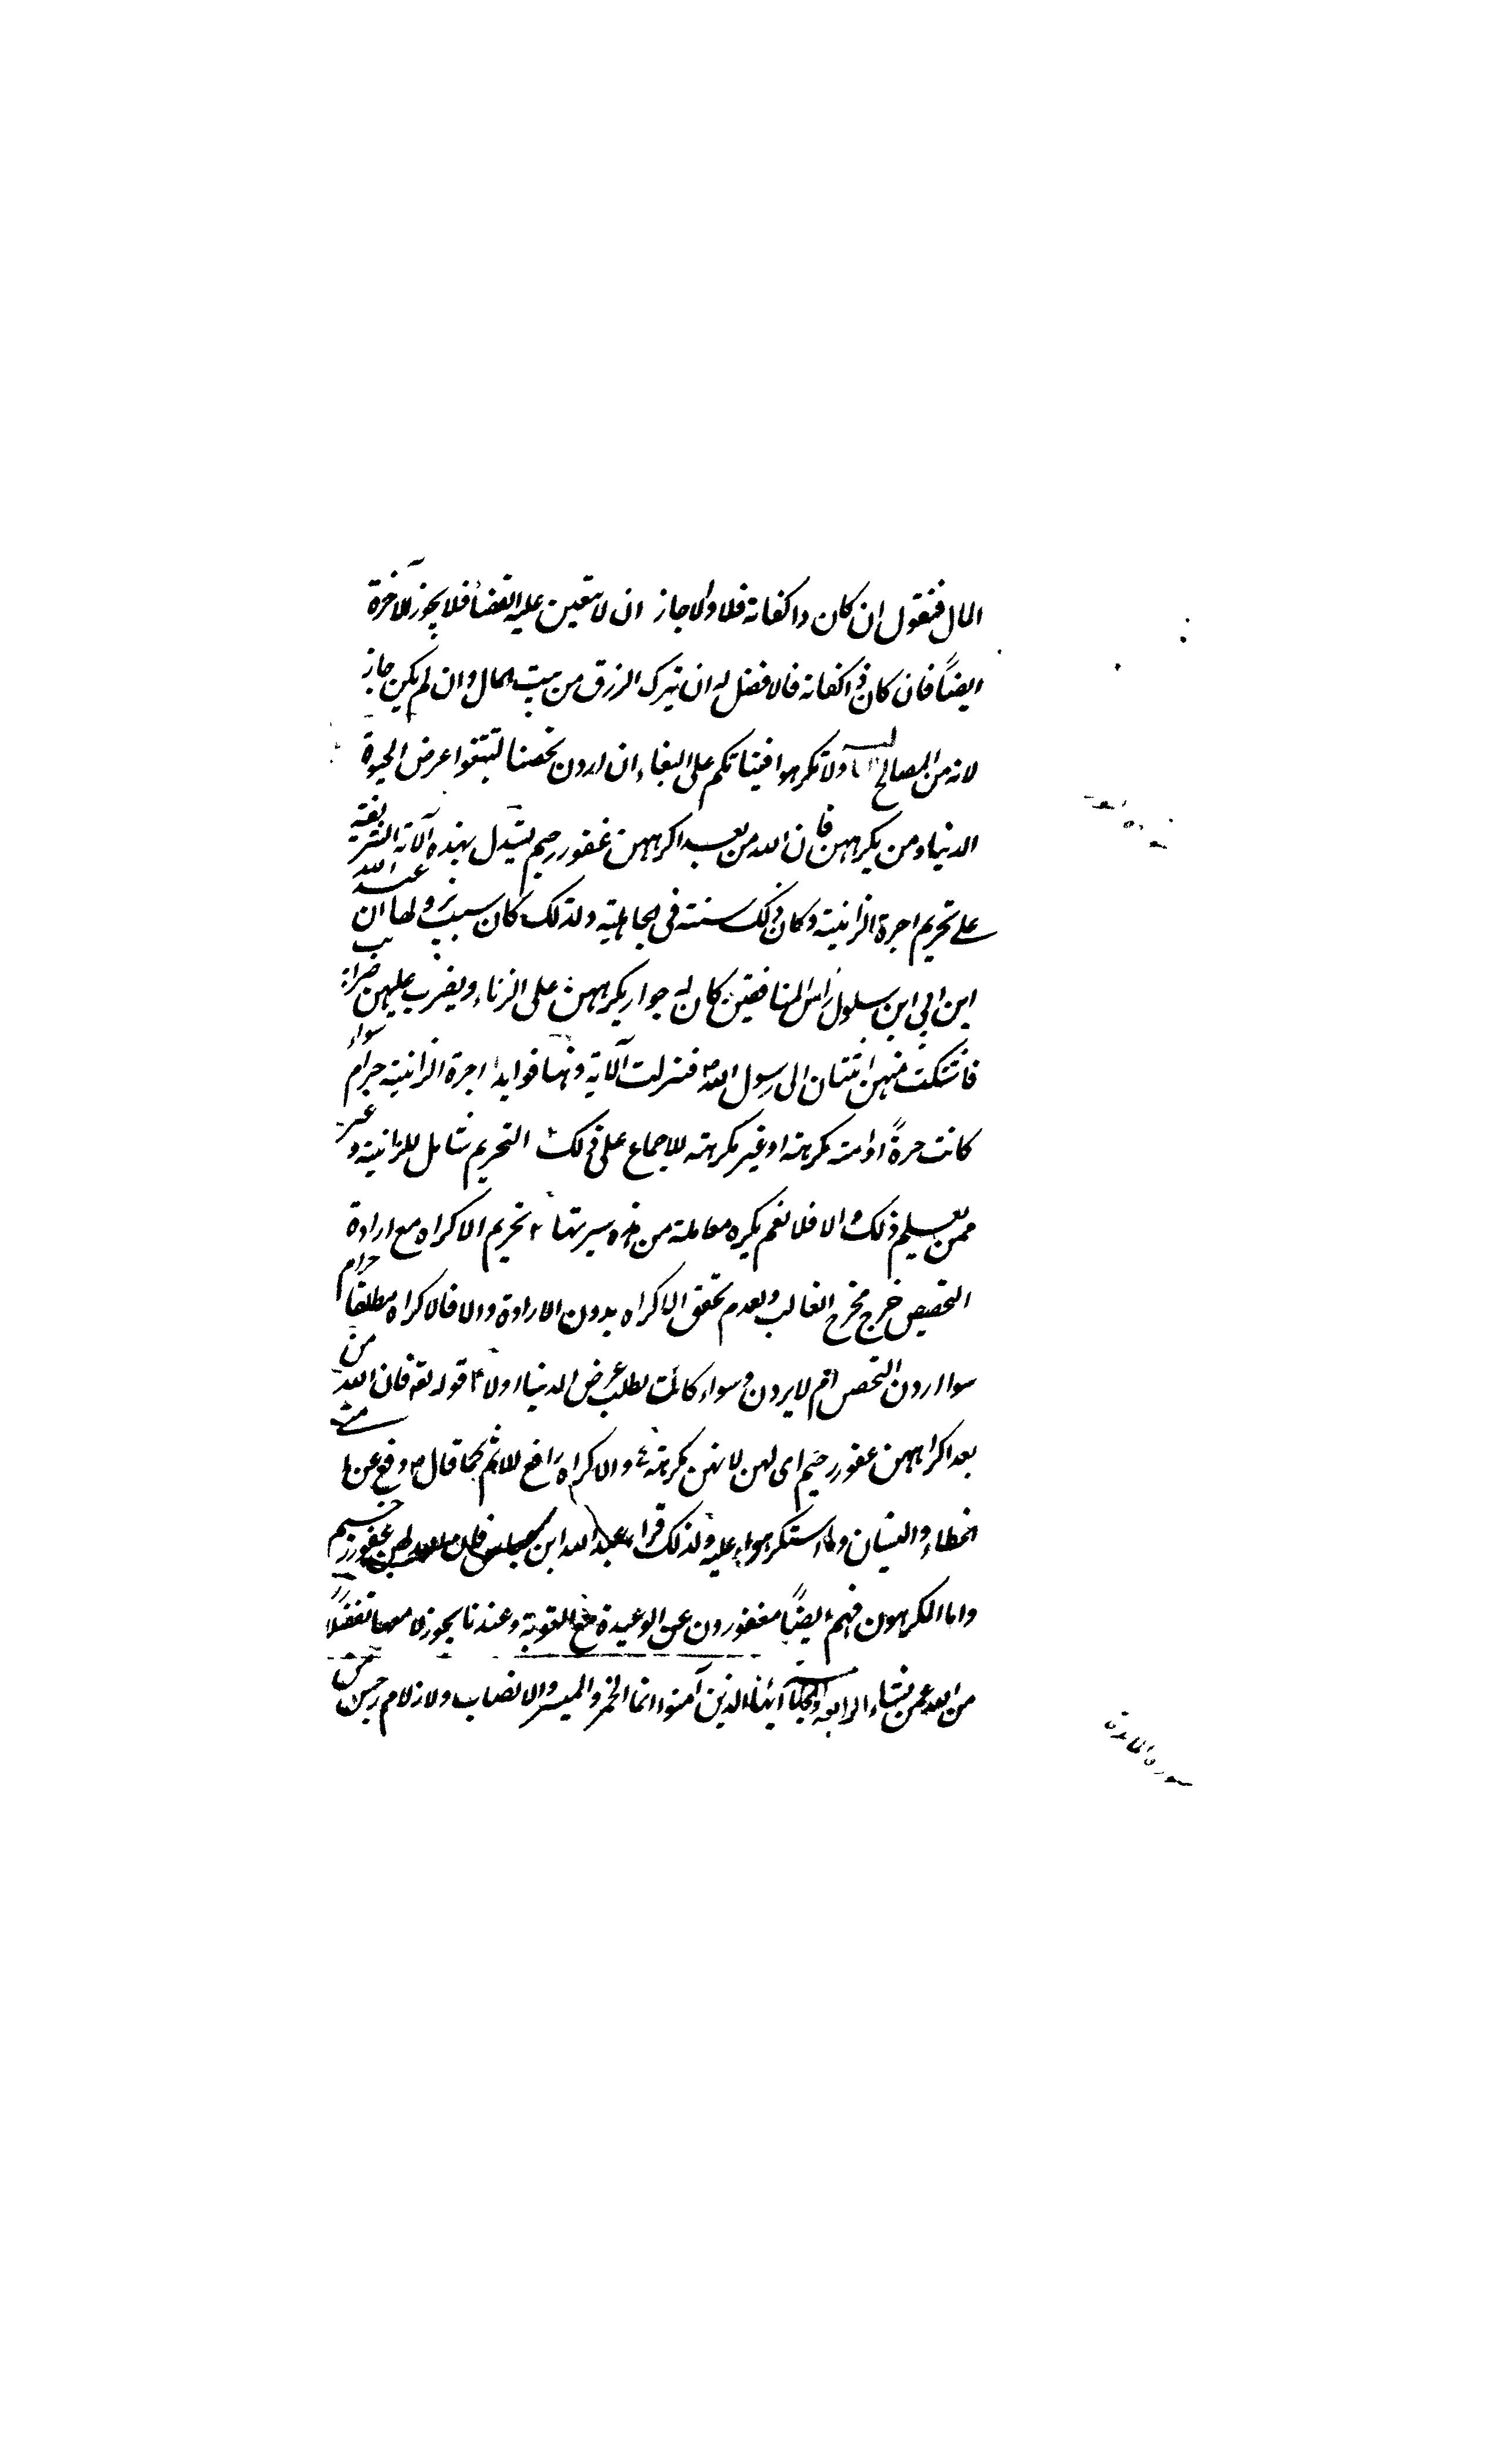 المال فنقول ان كان ذا كفاية فلا والا جاز ان لا يتعين عليه القضاء فلا يجوز الاخرة
ايضاً فان كان ذا كفاية فالافضل له ان يترك الرزق من بيت المال وان لم يكن جاز
لانه من المصالح ولا تكرهوا فتياتكم على البغاء ان اردن تحصنا لتبتغوا عرض الحيوة
الدنيا ومن يكرههن فان الله من بعد اكراههن غفور رحيم يستدل بهذه الآية الشريفة
على تحريم اجرة الزانية وكان ذلك سنته فى الجاهلية ولذلك كان سبب نزولها ان عبد الله
ابن ابي ابن سلول راس المنافقين كان له جوار يكرههن على الزناء ويضرب عليهن ضرائب
فاشتكت منهن اثنتان الى رسول الله ص فنزلت الآية وفيها فوايد ا اجرة الزانية حرام سواء
كانت حرةً او امته مكرهته او غير مكرهته للاجماع على ذلك التحريم شامل للزانية وغير
ممن يعلم ذلك والا فلا نعم يكره معاملة من هذه سيرتها ٢ تحريم الاكراه مع ارادة
التحصيص خرج مخرج الغالب ولعدم تحقق الاكراه بدون الارادة والا فالاكراه مطلقا حرام
سواء اردن التحصن ام لا يردن وسواء كانت لطلب عرض الدنيا اولا ٣ قوله تعه فان الله من
بعد اكراههن غفور رحيم اى لهن لانهن مكرهة ٤ والاكراه رافع للاثم كما قال ص رفع عن امتى
الخطاء والنسيان وما استكرهوا عليه ولذلك قراء عبد الله ابن عباس فان الله لهن غفور رحيم
واما المكرهون فهم ايضاً مغفورون عن الوعيدة مع التوبة وعندنا يجوز لا معها تفضلاً
من الله عمن يشاء الرابعة يا ايها الذين آمنوا انما الخمر والميسر والانصاب ولازلام رجس من
سورة المائدة